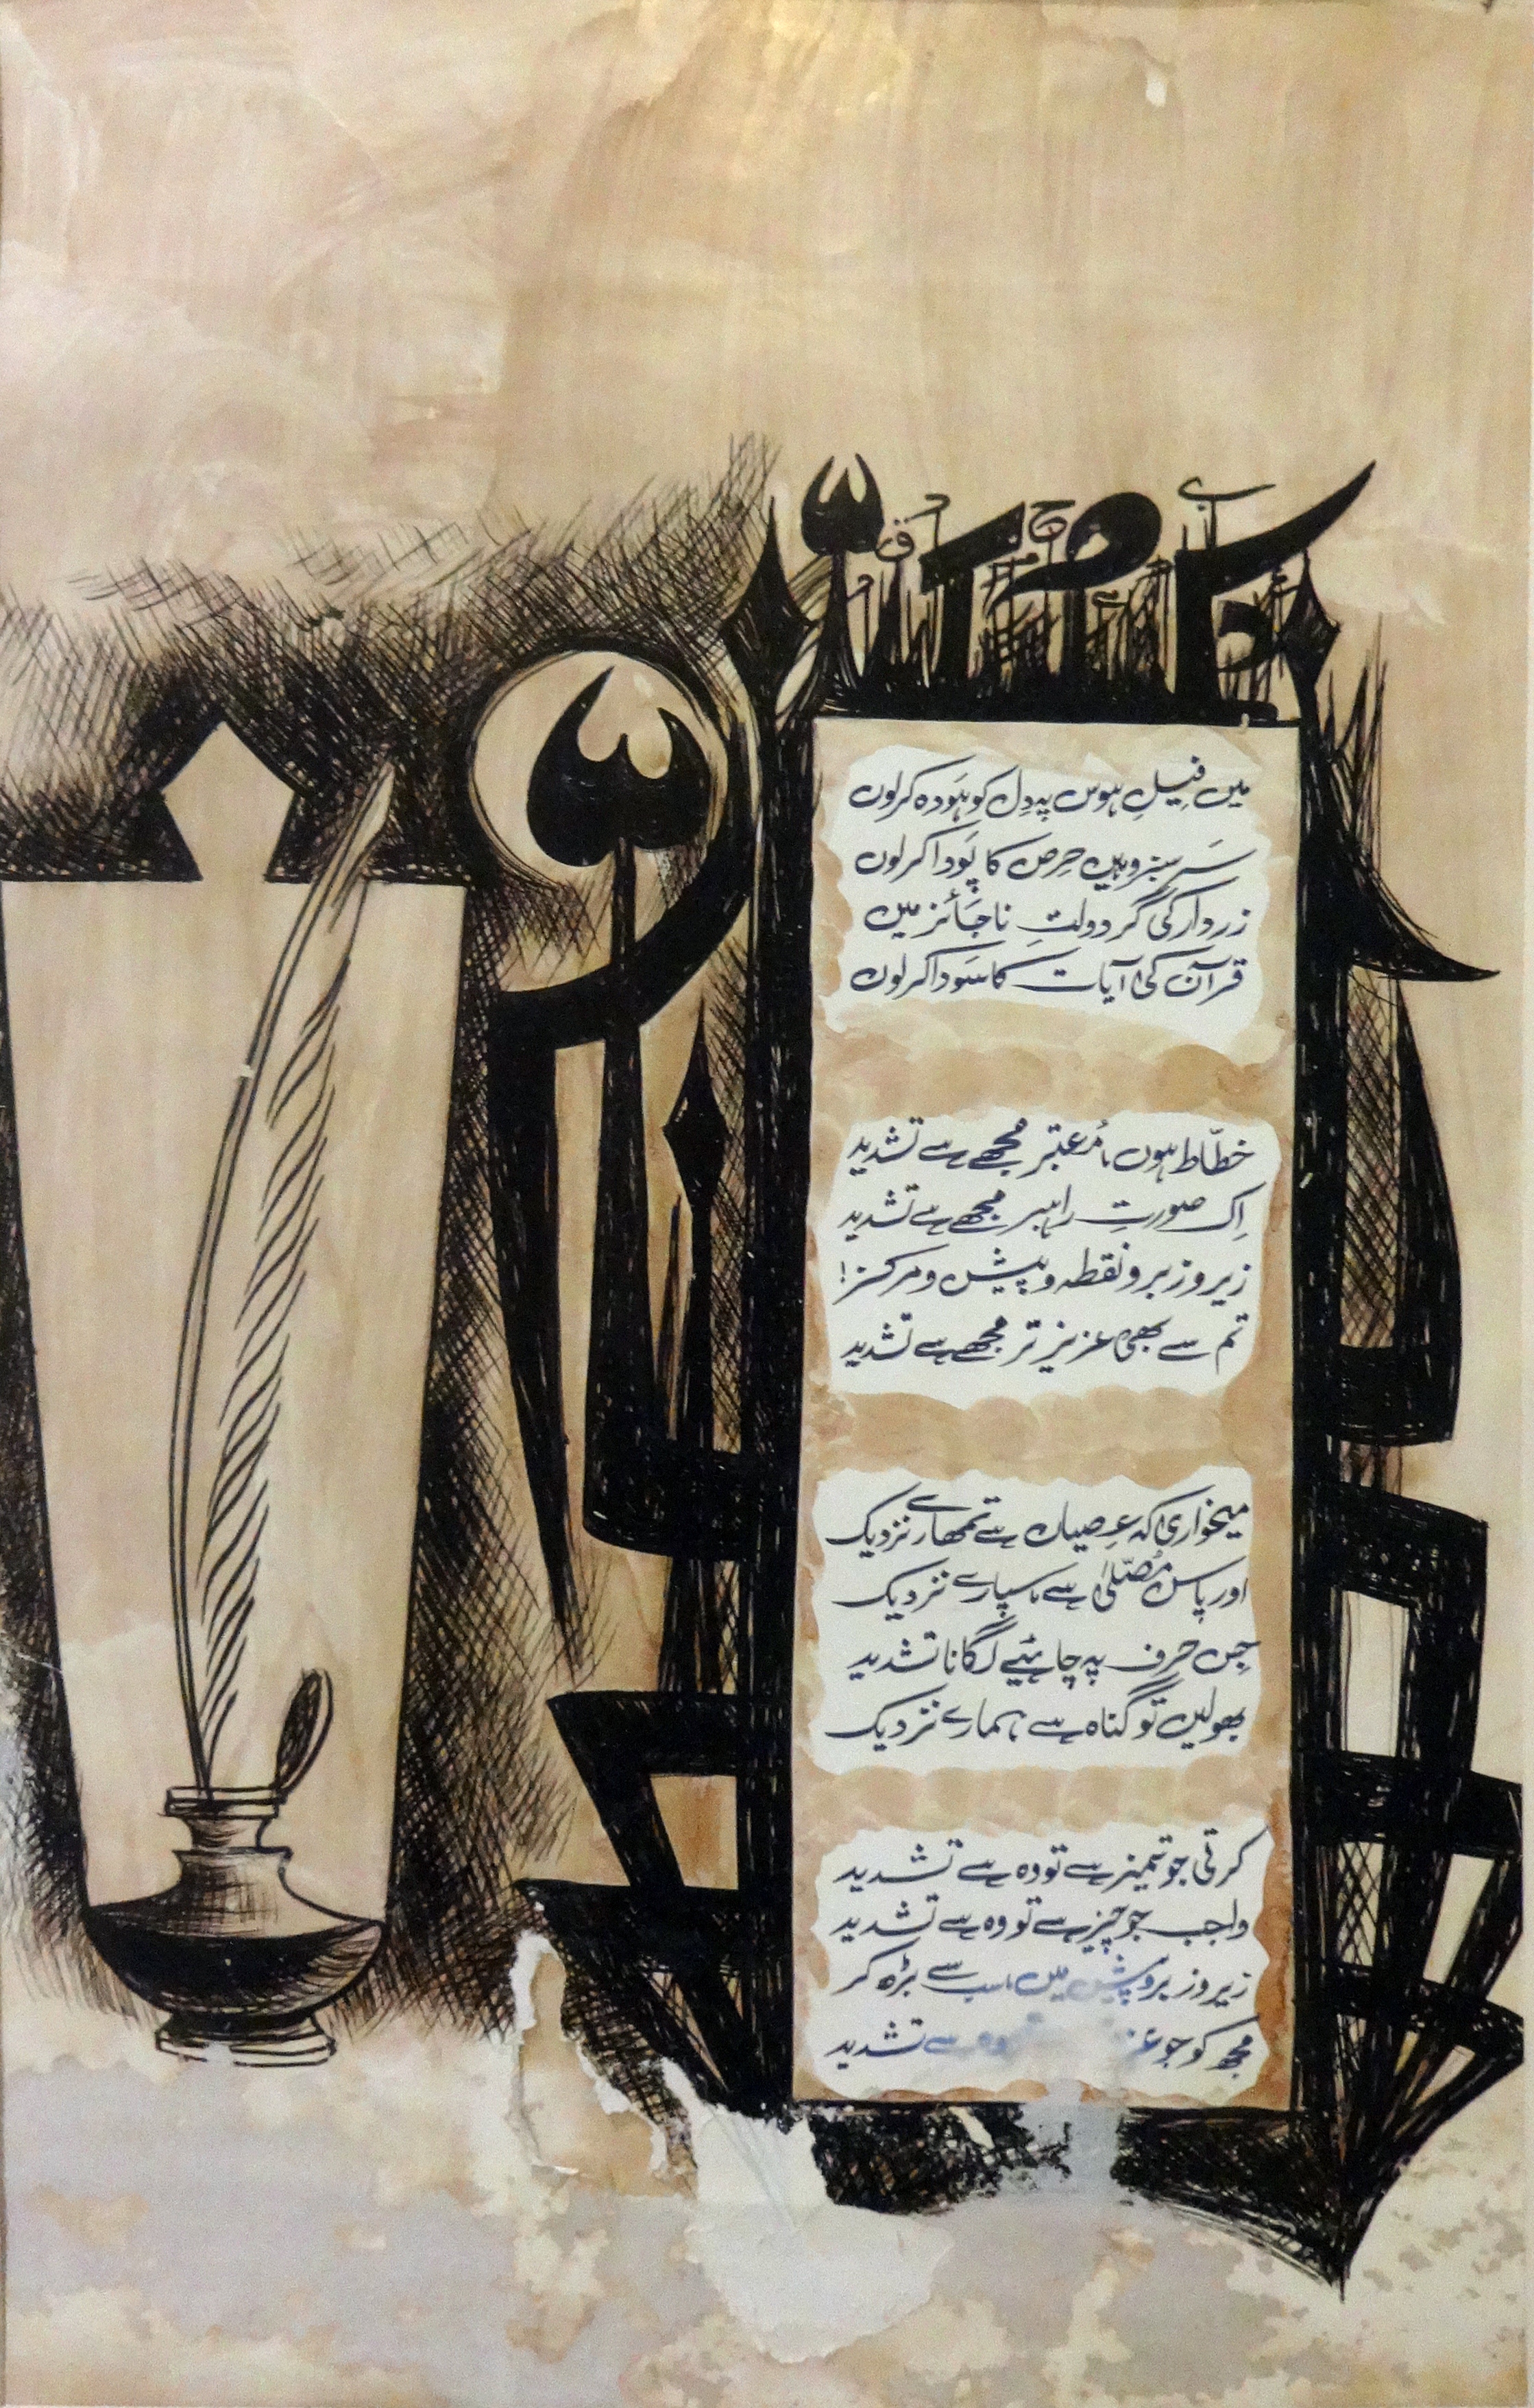 میں فیلِ ہوس پہ دِل کو ہَودہ کرلوں
سَرسبز وہیں حِرص کا پَودا کرلوں
زردار کی گر دولتِ ناجَائز میں
قرآن کی آیات کا سَودا کرلوں
خطّاط ہوں نامُعتبر مجھے سے تشدید
اِک صورتِ راہبر مجھے سے تشدید
زیر و زبر و نقطہ و پیش و مرکز!
تم سے بھی عزیز تر مجھے سے تشدید
میخواری کہ عِصیاں سے تمھارے نزدیک
اور پاس مُصَلّیٰ سے سپارے نزدیک
جِس حرف پہ چاہئیے لگانا تشدید
بھولیں تو گناہ سے ہمارے نزدیک
کرتی جو تمیز سے تو وہ سے تشدید
واجب جو چیز سے تو وہ سے تشدید
زیر و زبر و پیش میں سب سے بڑھ کر
مجھ کو جو وہ سے تشدید